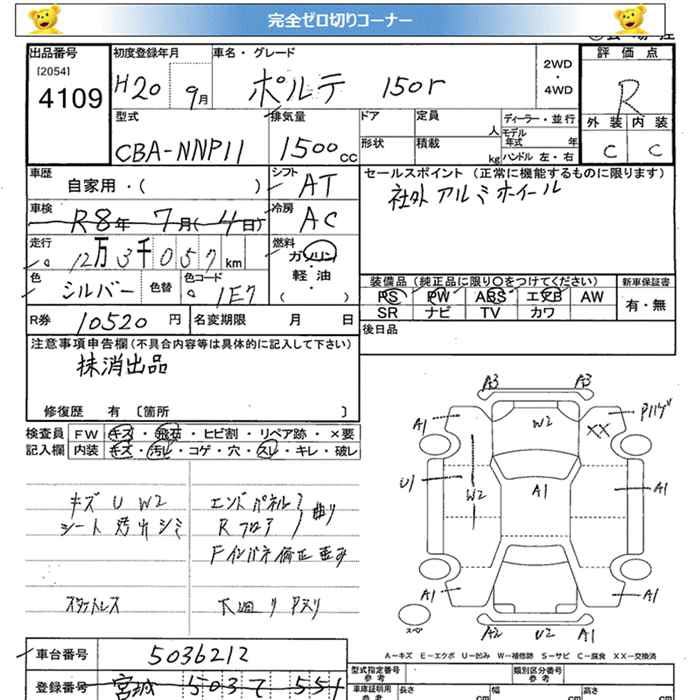 完全ゼロ切りコーナー
出品番号 初度登録年月 車名・グレード 2WD ・ 4WD 評価点
[2054]
4109 H20 9月 ポルテ 150r R
型式 排気量 ドア 定員 人 ディーラー・並行 外装 内装
CBA-NNP11 1500cc 形状 積載 kg モデル年式 年 ハンドル 左・右 C C
車歴 自家用・( ) シフト AT セールスポイント (正常に機能するものに限ります)
社外アルミホイール
車検 R8年 7月(4日) 冷房 AC
走行 12万3千057km 燃料 ガソリン 軽・油 ( )
色 シルバー 色替 色コード 1E7
装備品 (純正品に限り〇をつけてください) 新車保証書
PS PW ABS エアB AW 有・無
SR ナビ TV カワ
R券 10520円 名変期限 月 日 後日品
注意事項申告欄(不具合内容等は具体的に記入して下さい)
抹消出品
修復歴 有 [箇所 ]
検査員 FW キズ・飛石・ヒビ割・リペア跡・×要
記入欄 内装 キズ・汚レ・コゲ・穴・スレ・キレ・破レ
キズ U W2
シート 汚れ シミ
スタットレス
エンドパネル
Rフロア 曲り
Fインパネ 修正 歪み
下廻り Pスリ
A3 A3
A1 W2 XX Pハゲ
U1 W2 A1 A1
A1 A1
スペア A2 U2 A1
A-キズ E-エクボ U-凹み W-補修跡 S-サビ C-腐食 XX-交換済
車台番号 5036212
登録番号 宮城 503 て 551
型式指定番号 参考 類別区分番号 参考
車庫証明用 参考 長さ cm 幅 cm 高さ cm